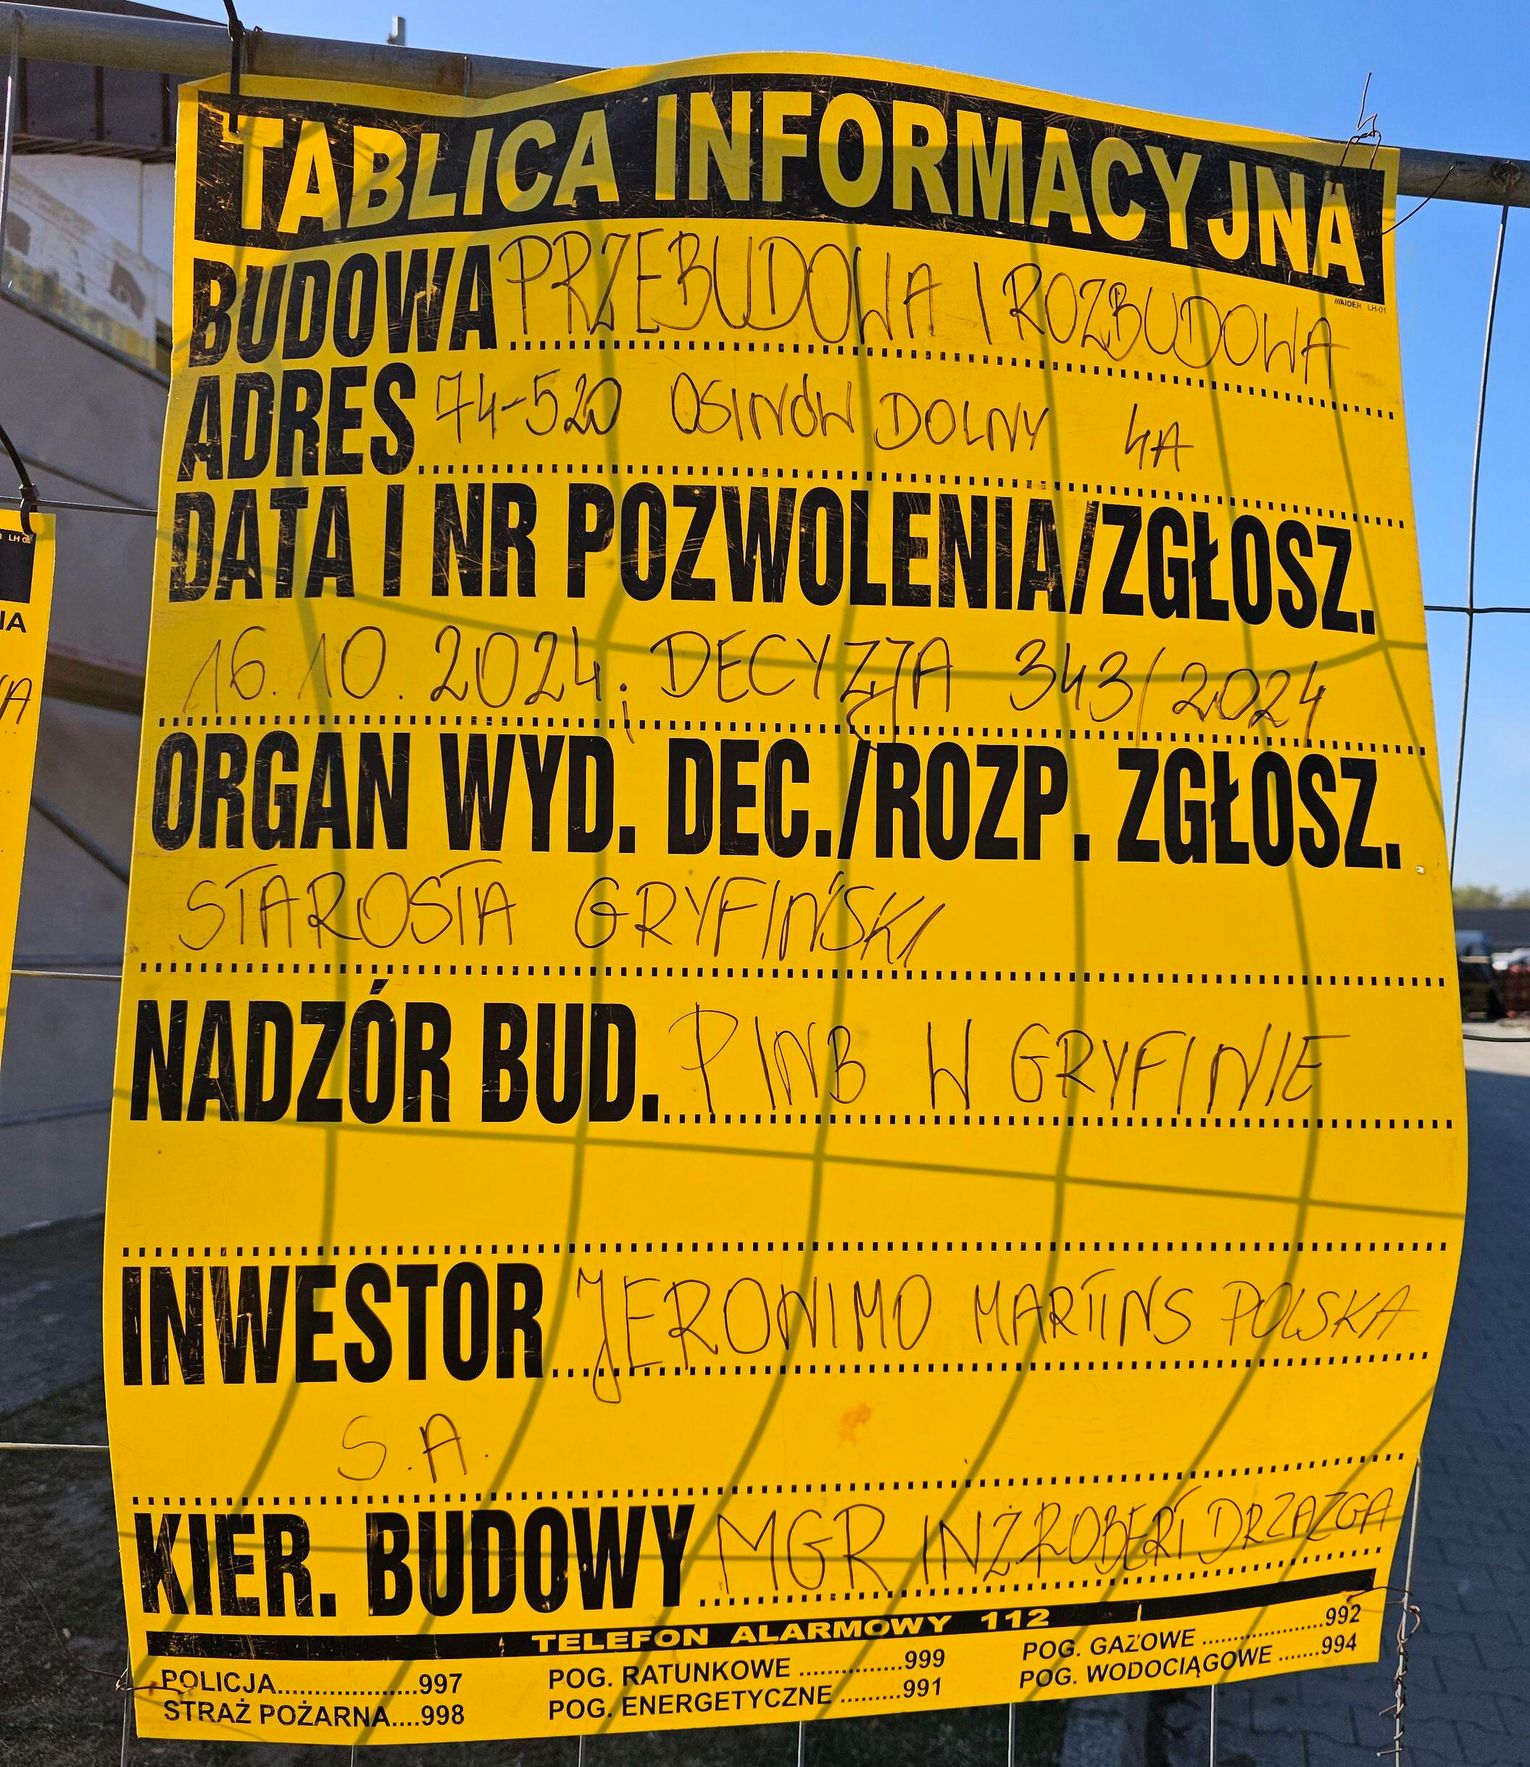 TABLICA INFORMACYJNA
AIDER LH-01
BUDOWA PRZEBUDOWA I ROZBUDOWA
ADRES 74-520 OSINÓW DOLNY 4A
DATA I NR POZWOLENIA/ZGŁOSZ.
16.10.2024; DECYZJA 343/2024
ORGAN WYD. DEC./ROZP. ZGŁOSZ.
STAROSTA GRYFIŃSKI
NADZÓR BUD. PINB W GRYFINIE
INWESTOR JERONIMO MARTINS POLSKA
S.A.
KIER. BUDOWY MGR INŻ. ROBERT DRZAZGA
TELEFON ALARMOWY 112
POLICJA..................997 POG. RATUNKOWE ...............999 POG. GAZOWE ....................992
STRAŻ POŻARNA....998 POG. ENERGETYCZNE .........991 POG. WODOCIĄGOWE .......994